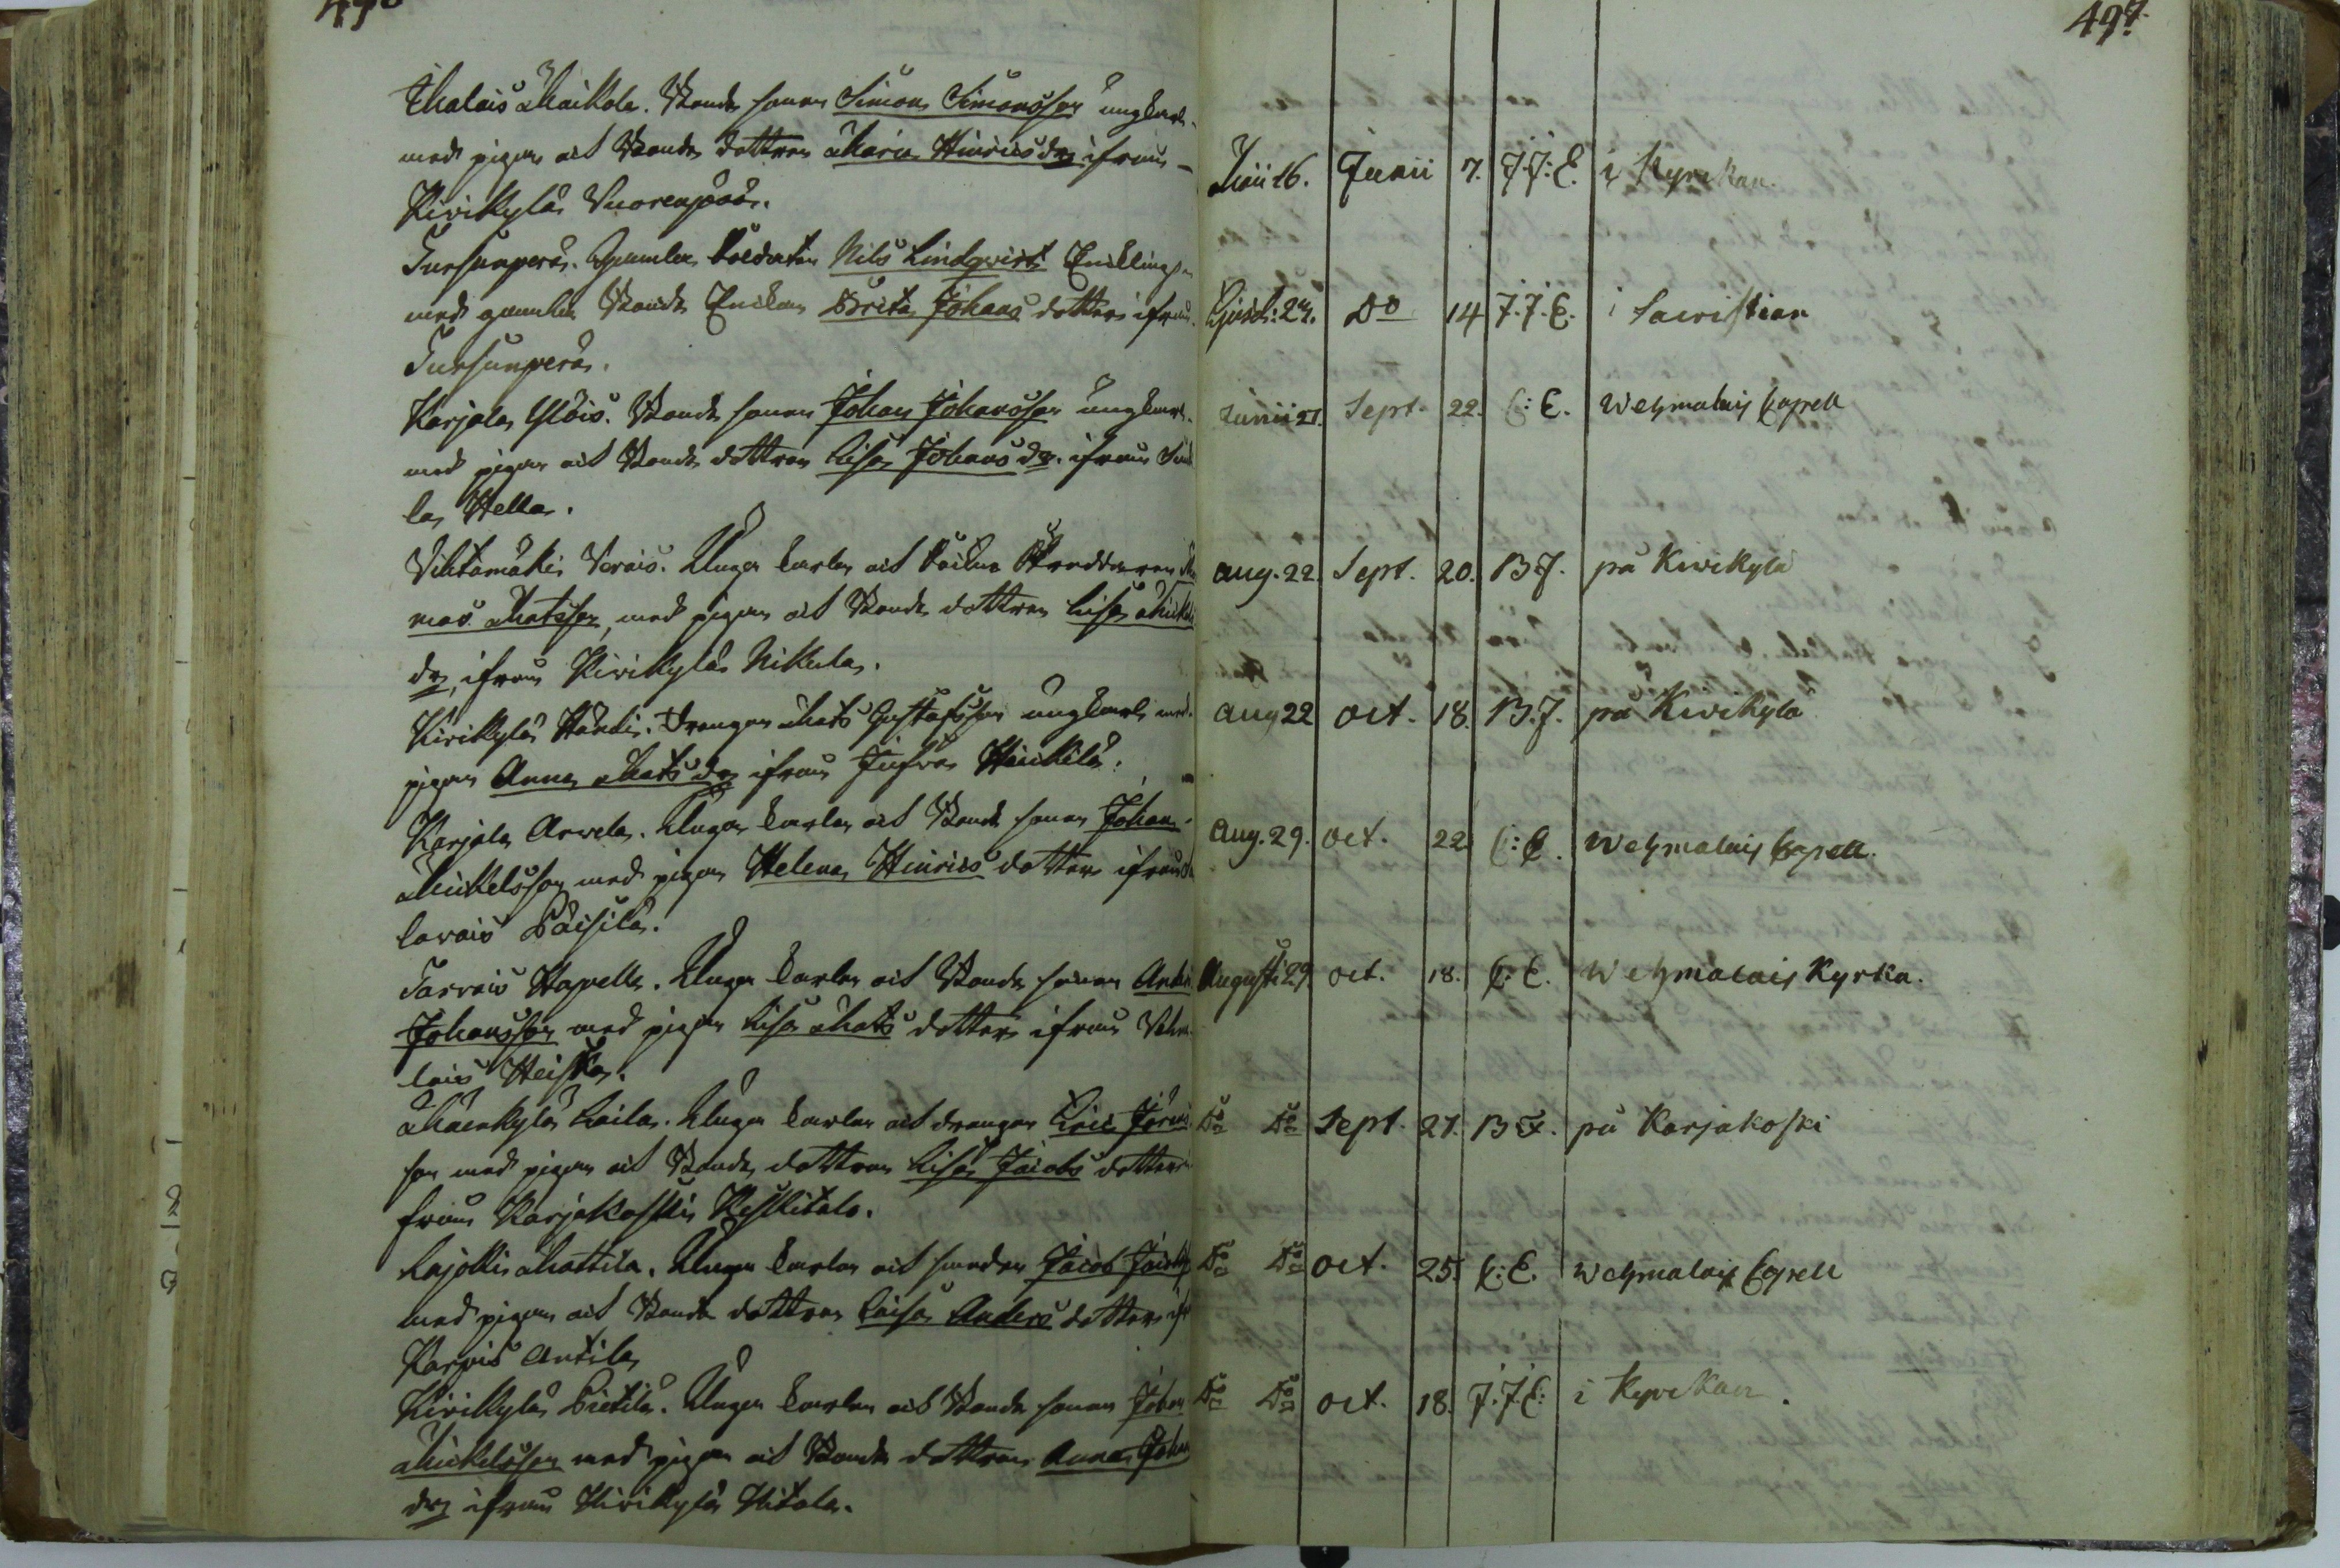 496
Matais Maikola. Bonde sonen Simon Simonsson ungkarl
med pigan ock Bonde dottren Maria Hinricsdr ifrån
Kivikylä Vuorenpää.
Tursunperä. Gamla Soldaten Nils Lindqvist Enklingen
med gamla Bonde Enkan Brita Johans dotter ifrån
Tursunperä.
Karjala Ylöis. Bonde sonen Johan Johansson ungkarl
med pigan ock Bonde dottren Lisa Johans dr. ifrån
la Hella.
Vihtamäki Verais. Unga karlen ock Sockne Skreddaren
mas Matsson, med pigan ock Bonde dottren Lisa Mickels
dr, ifrån Kivikylä Nikula.
Kivikylä Händi. Drängen Mats Gustafsson ungkarl med
pigan Anna Mats dr ifrån Heikkilä.
Karjala Arvela. Unga karlen ock Bonde sonen Johan
Mickelsson med pigan Helena Hinrics dotter ifrån
larais Päisilä.
Tarvais Kapelle. Unga karlen ock Bonde sonen Anders
Johansson med pigan Lisa Mats dotter ifrån Vehma
lais Heiska.
Mäenkylä Laila. Unga karlen ock drängen Eric Jöran
son med pigan ock Bonde dottren Lisa Jacobs dotter i
från Karjakoski Keskitalo.
Lajokki Mattila. Unga karlen ock Jacob
med pigan ock Bonde dottren Caisa Anders dotter ifr
Karpis Antila
Kivikylä Pietilä. Unga karlen ock Bonde sonen Johan
Mickelsson med pigan ock Bonde dottren Anna Johans
dr ifrån Kivikylä Kitola.
497.
Maii 16. Junii 7. J.J:E. i Kyrckan.
24. Do 14 J.J.E. i Sacristian
Junii 21. Sept. 22. C:E. Wehmalais Capell
Aug. 22. Sept. 20. B.J. på Kivikylä
Aug 22 Oct. 18. B.J. på Kivikylä
Aug. 29. Oct. 22 C:E. Wehmalais Capell.
Augusti 29. Oct. 18. C:E. Wehmalais Kyrka.
Do Do Sept. 27. B.J. på Karjakoski
Do Do Oct. 25. C:E. Wehmalais Capell
Do Do Oct. 18. J.J.E: i Kyrckan.